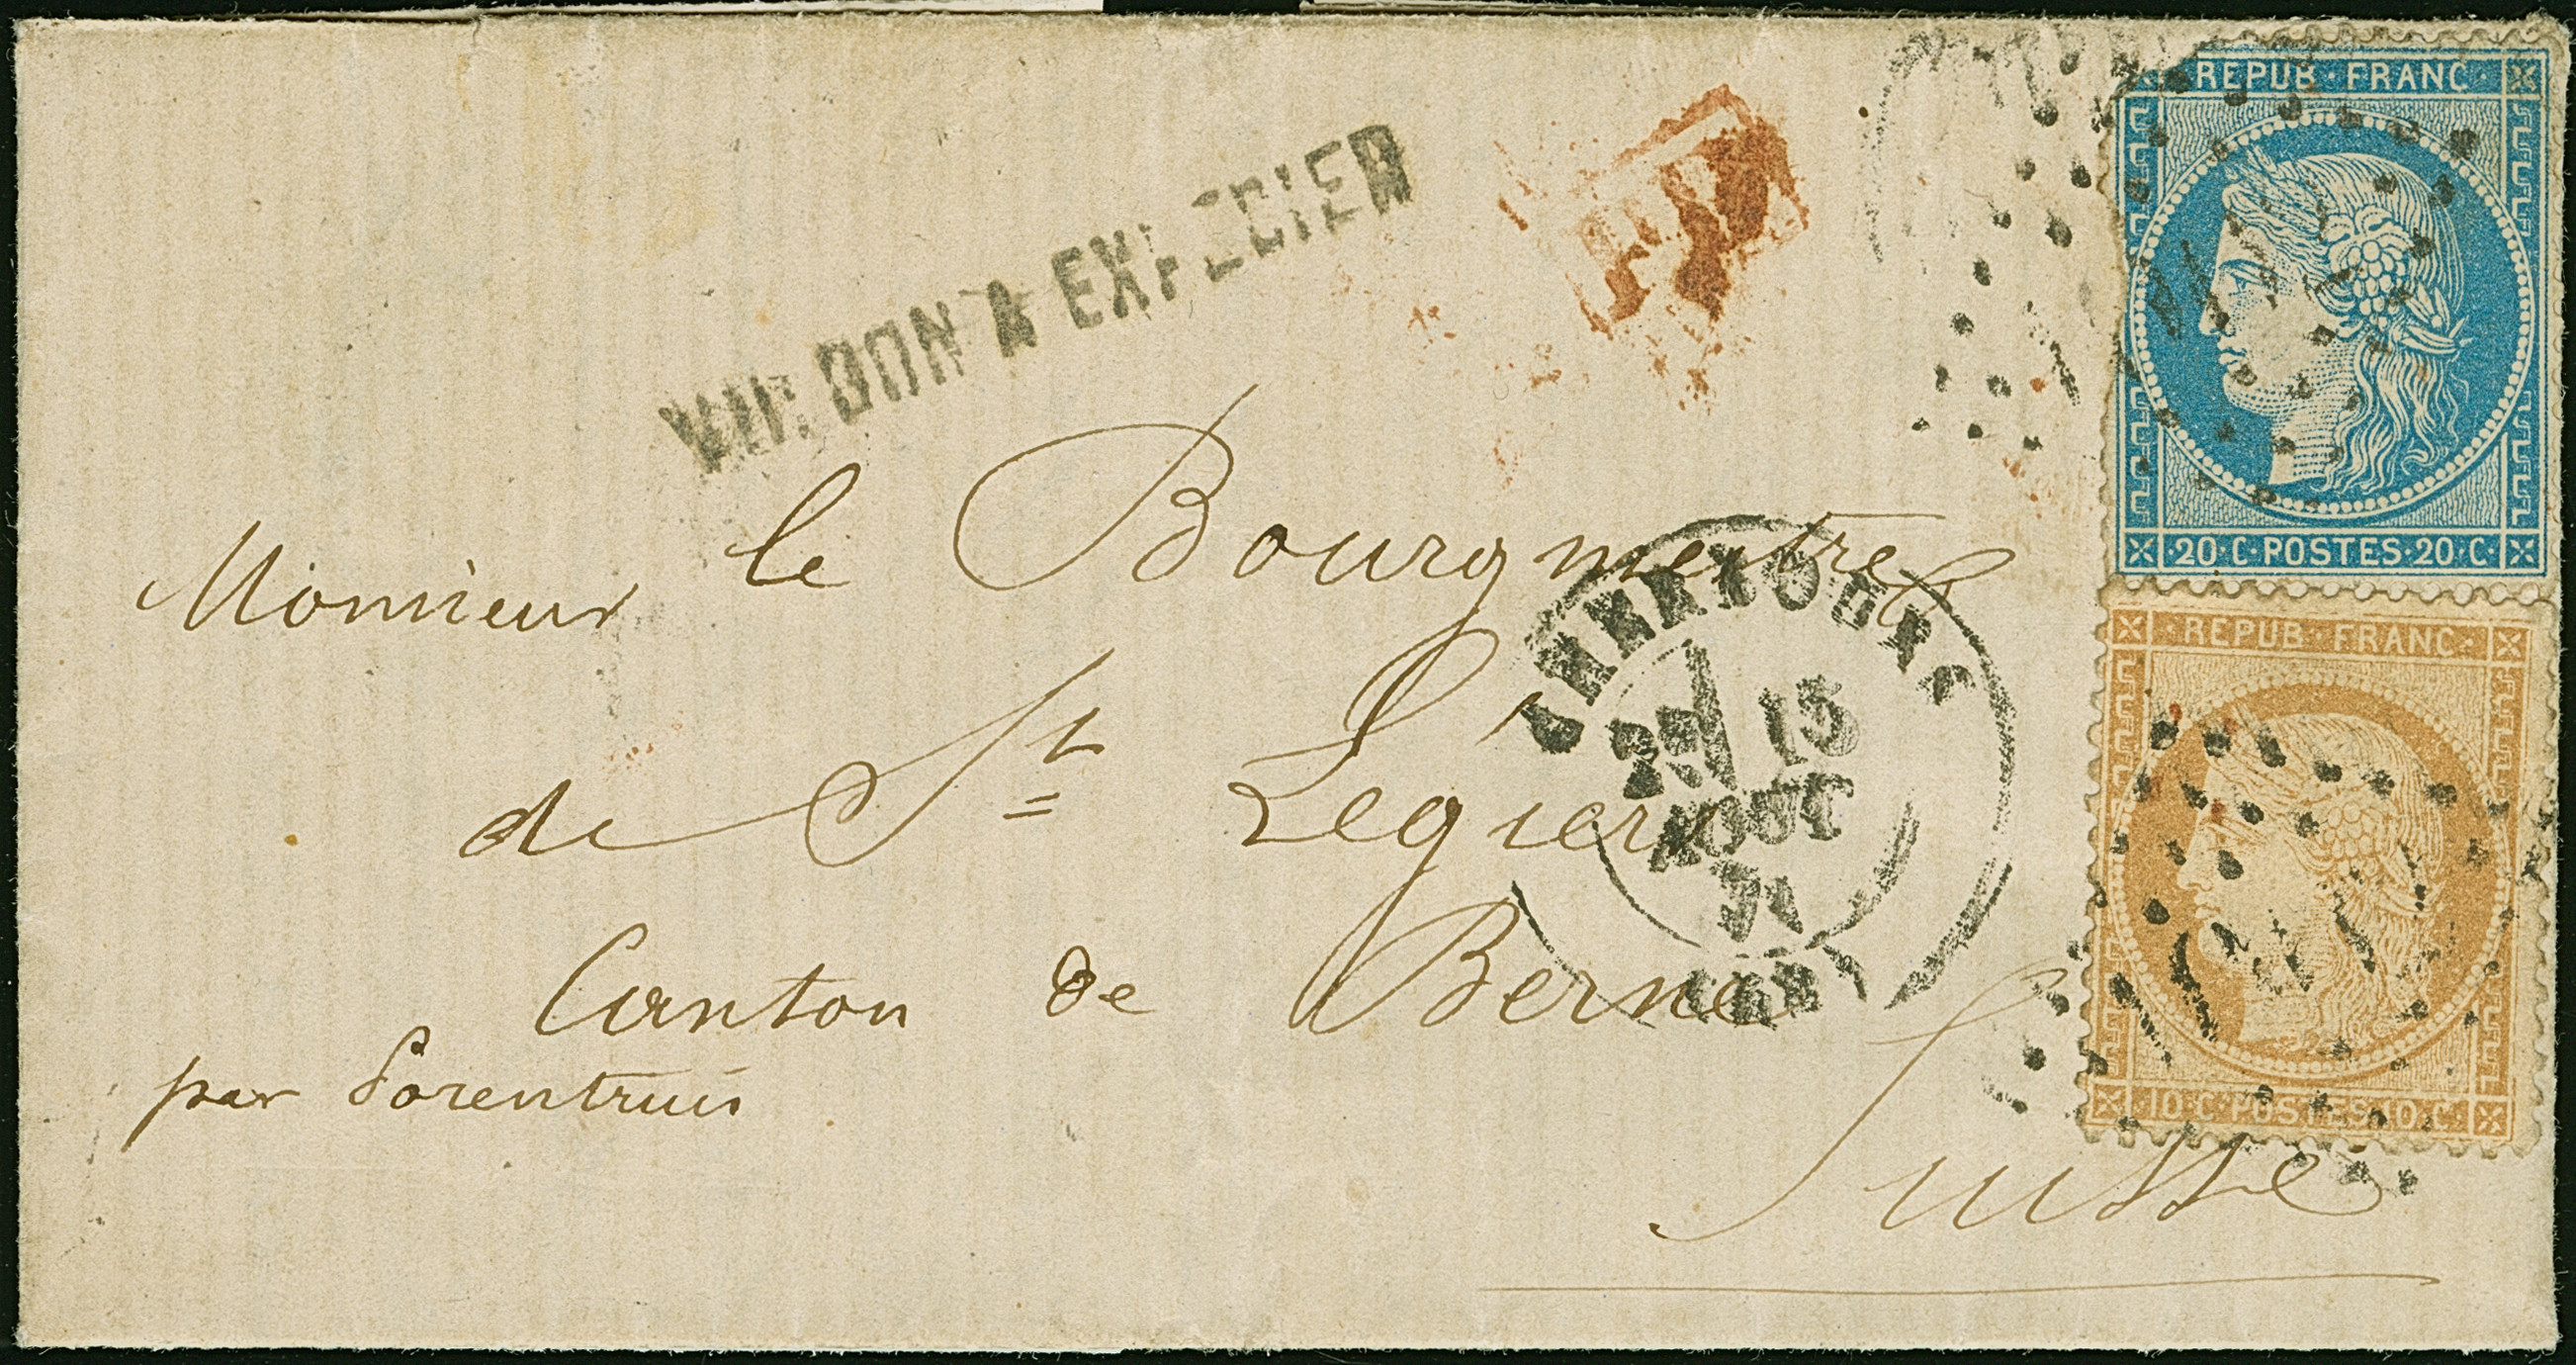 VU: BON A EXPEDIER
REPUB · FRANC ·
· 20 · C · POSTES · 20 · C ·
Monsieur le Bourgmestre
de St Légier
Canton de Berne
par Porentruis
Suisse
CHERBOURG
15
AOUT
71
· REPUB · FRANC ·
· 10 · C · POSTES · 10 · C ·